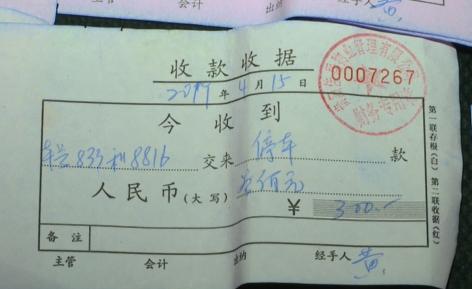 会计
出纳
经手人
收款收据
0007267
2019年4月15日
今收到
车号833和8816交来停车款
人民币(大写)叁佰元
¥300.-
备注
主管 会计 出纳 经手人 黄
第一联存根(白) 第二联收据(红)
财务专用章